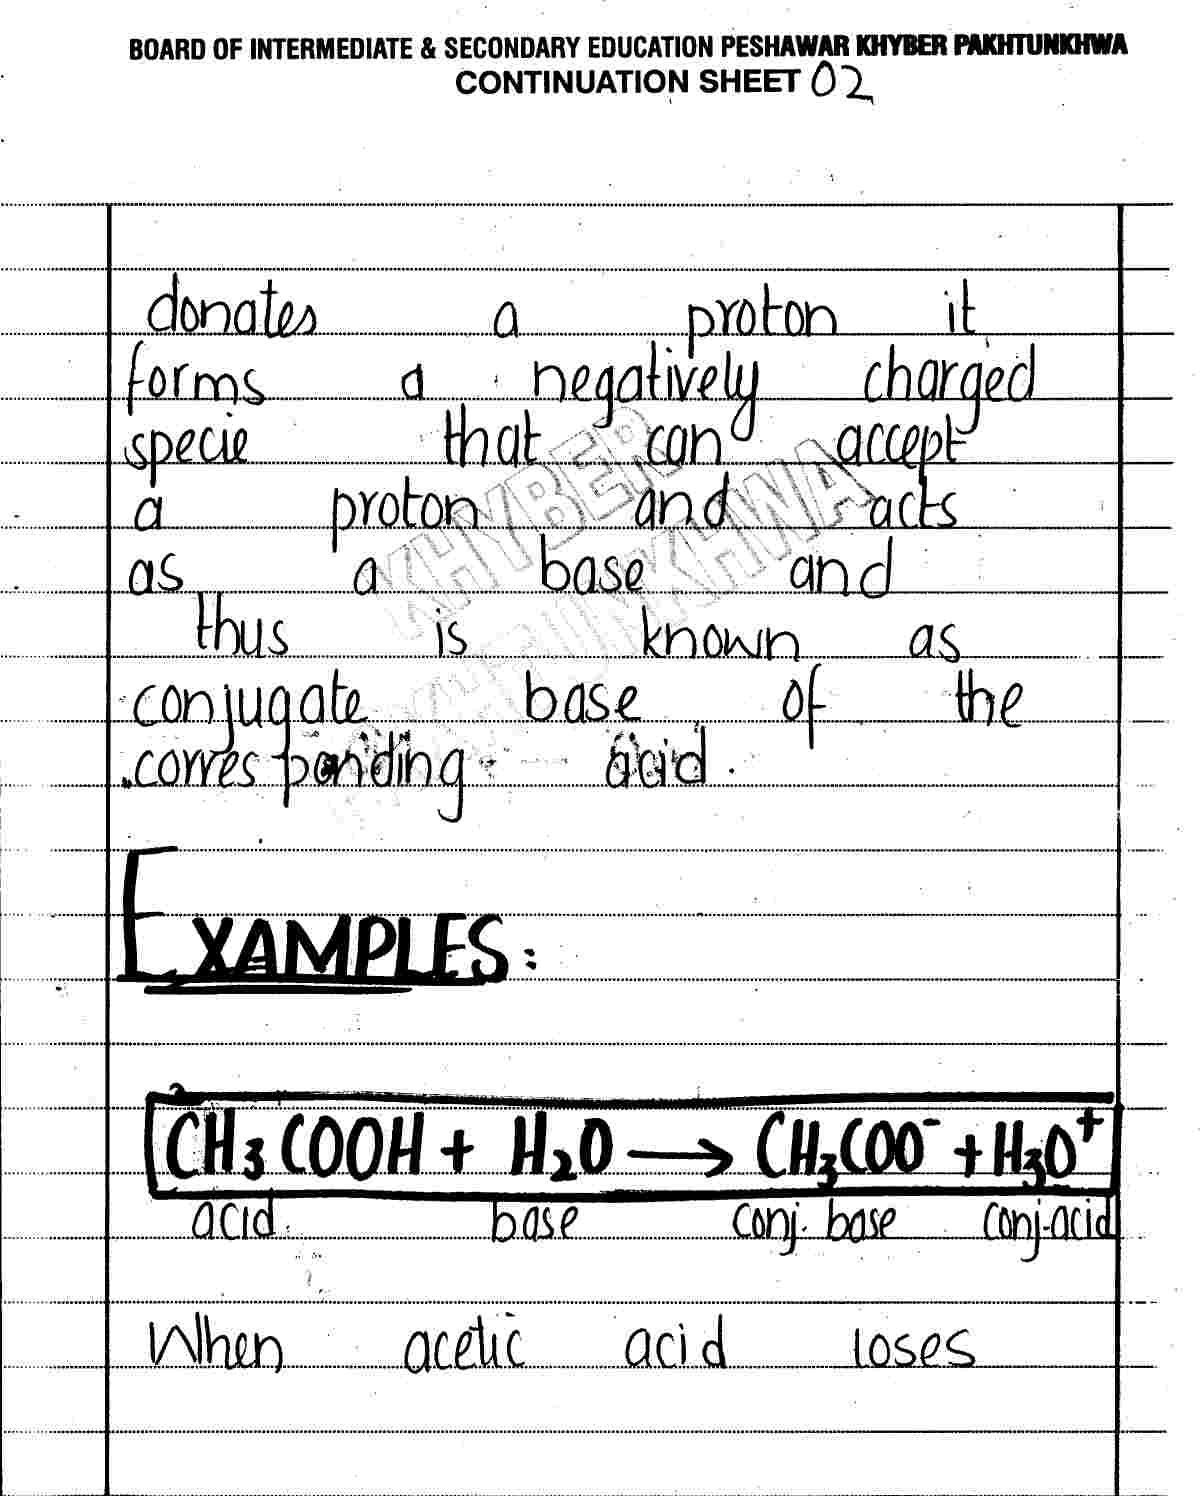 BOARD OF INTERMEDIATE & SECONDARY EDUCATION PESHAWAR KHYBER PAKHTUNKHWA
CONTINUATION SHEET 02
donates a proton it
forms a negatively charged
specie that can accept
a proton and acts
as a base and
thus is known as
conjugate base of the
corresponding acid.
EXAMPLES:
CH₃COOH + H₂O → CH₃COO⁻ + H₃O⁺
acid. base conj. base conj-acid
When acetic acid loses
KHYBER
PAKHTUNKHWA